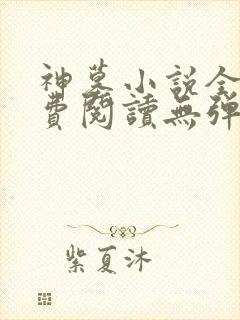 神墓小說全
費閱讀無彈
紫夏沐